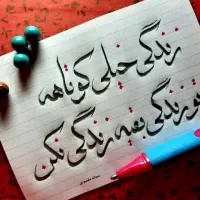 زندگی خیلی کوتاهه
تو زندگی بقیه زندگی نکن